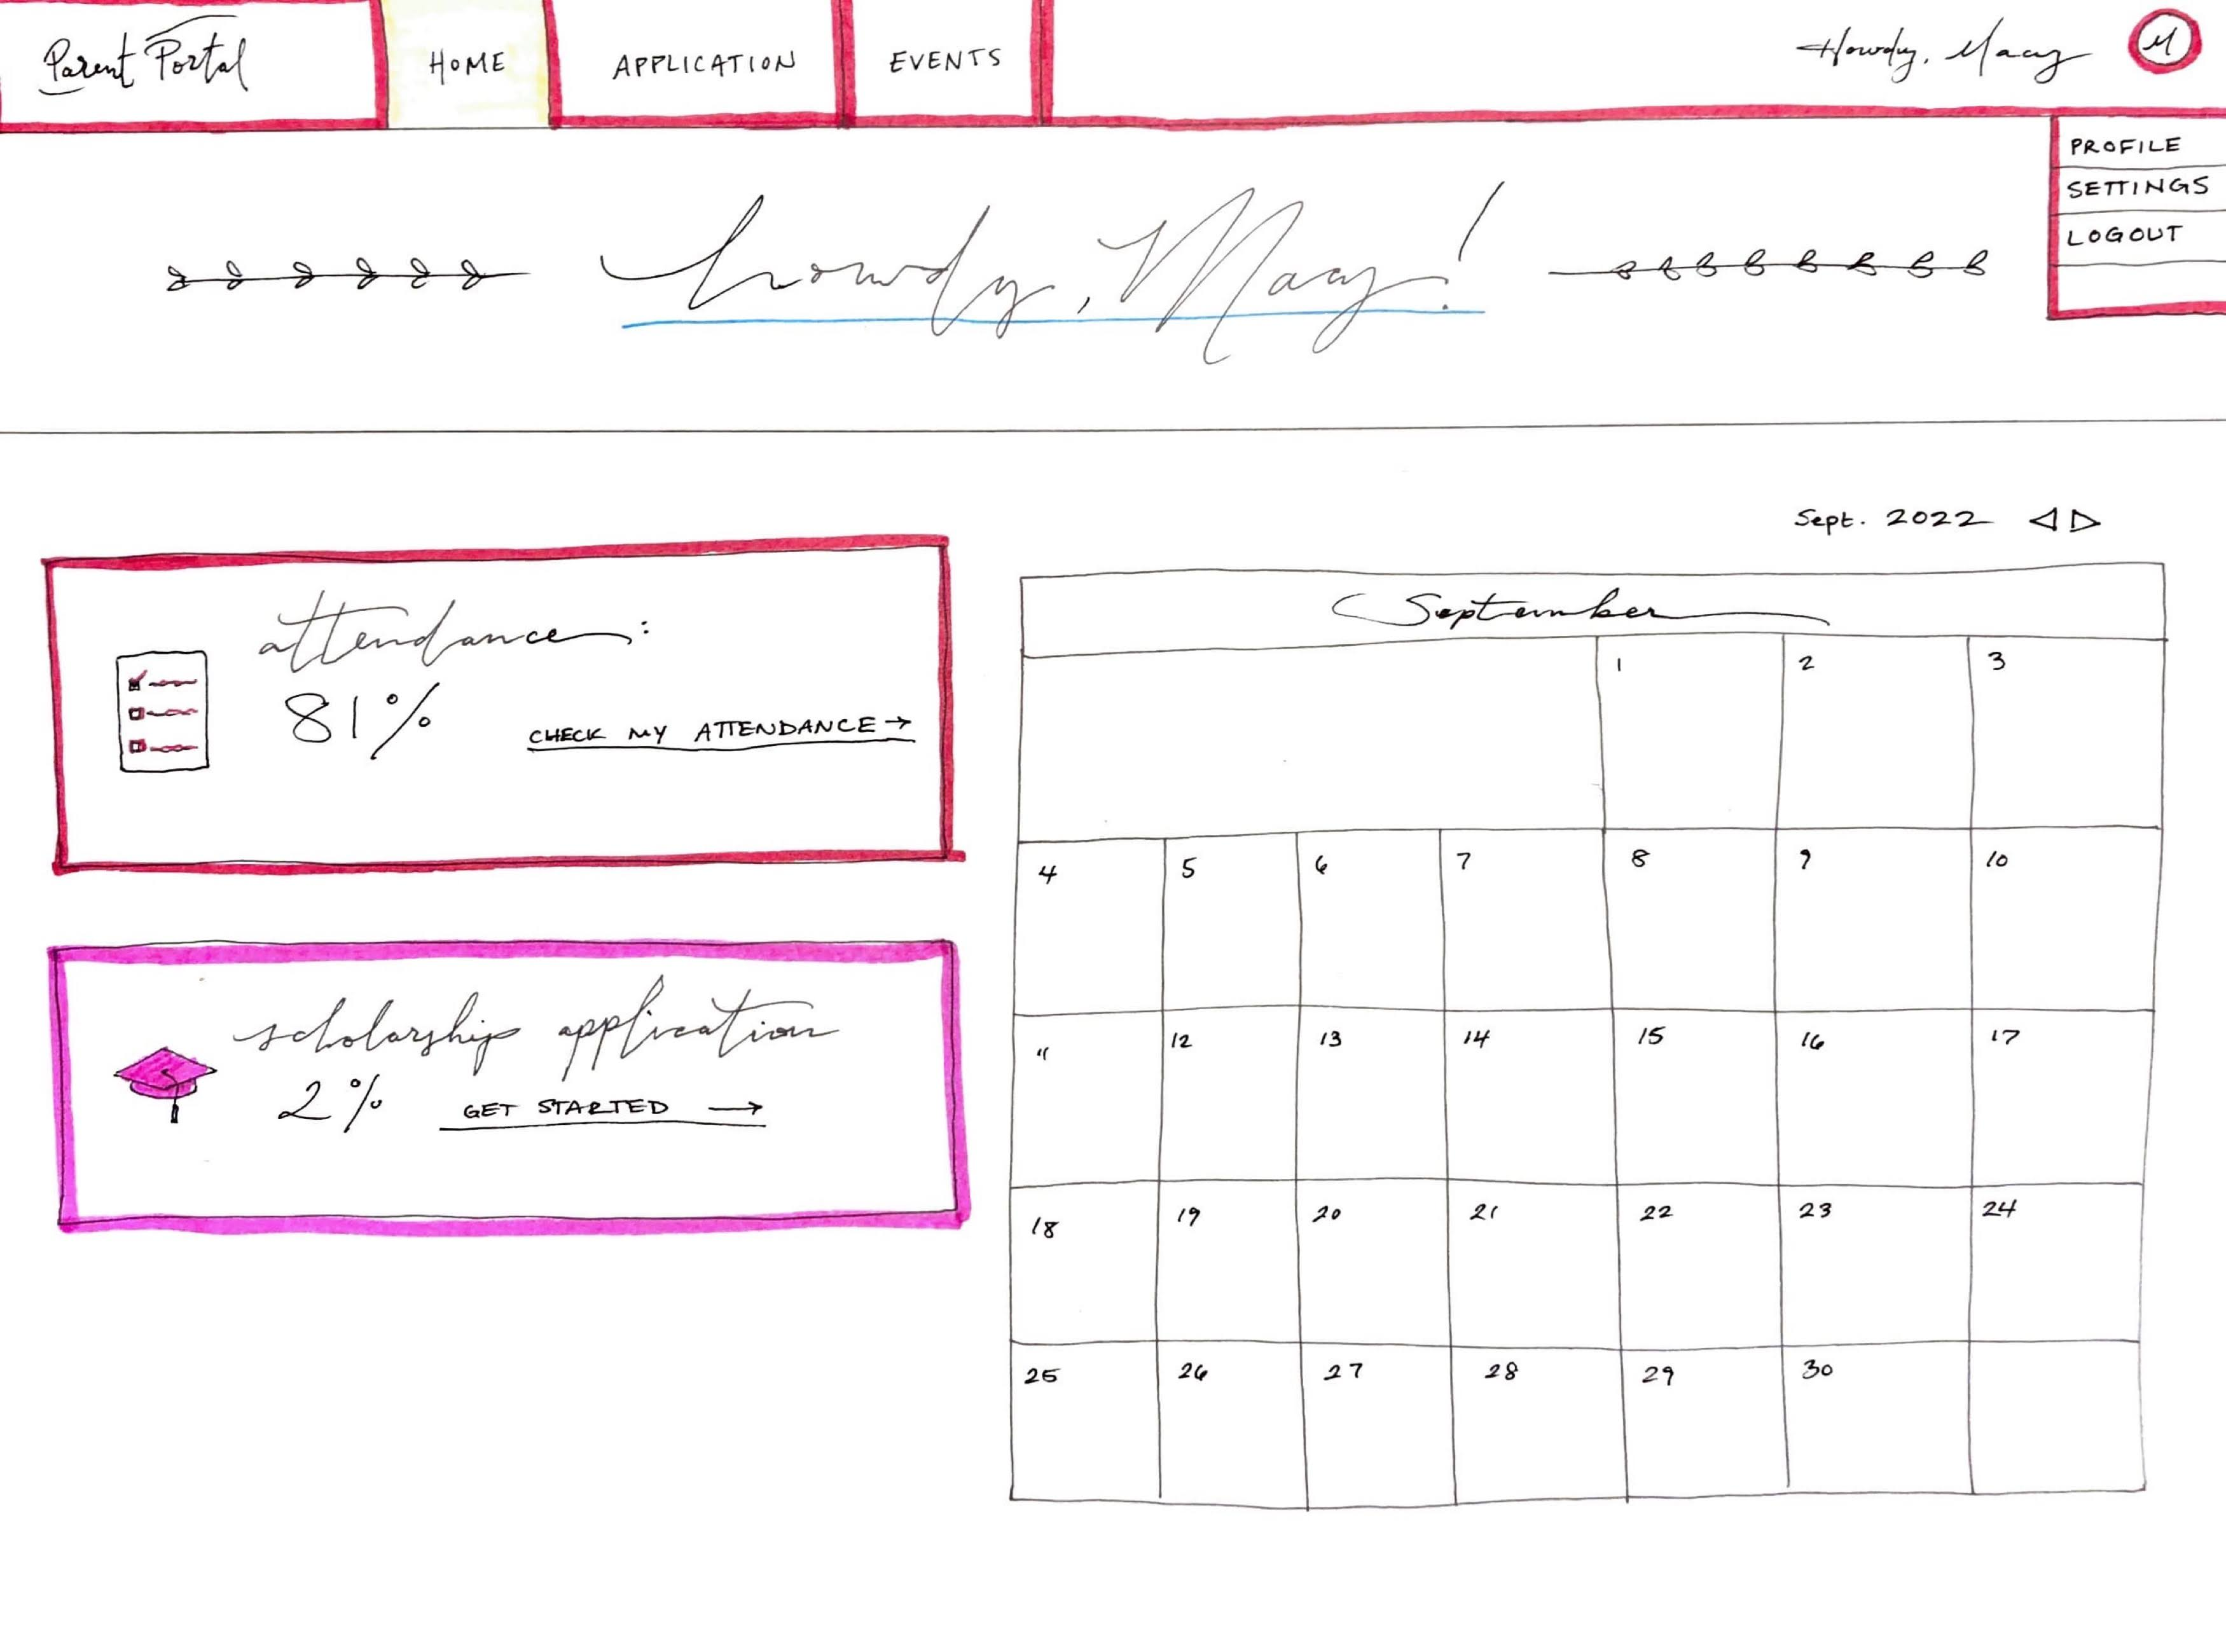 Parent Portal
HOME
APPLICATION
EVENTS
Howdy, Macy
M
PROFILE
SETTINGS
LOGOUT
howdy, Macy!
Sept. 2022
attendance:
81%
CHECK MY ATTENDANCE →
scholarship application
2%
GET STARTED →
September
1 2 3
4 5 6 7 8 9 10
11 12 13 14 15 16 17
18 19 20 21 22 23 24
25 26 27 28 29 30